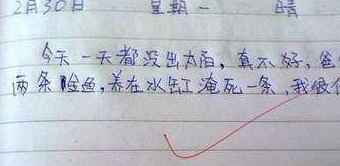 2月30日 星期一 晴
今天一天都没出太阳,真不好,爸
两条金鱼,养在水缸淹死一条,我很